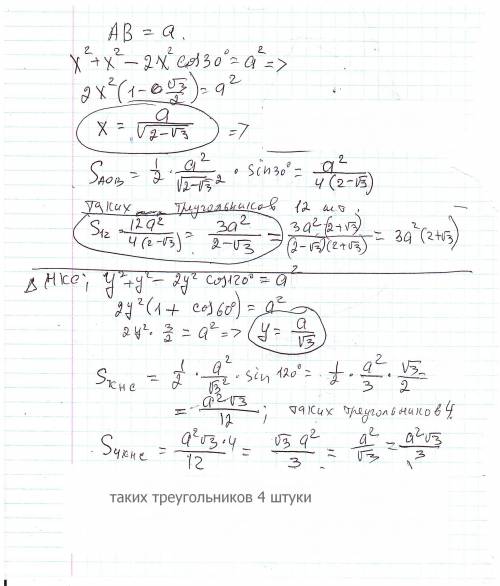 AB = a.
x² + x² − 2x² cos30° = a² =>
2x²(1 − √3/2) = a²
x = a/√(2−√3) =>
S_AOB = 1/2 · a²/√(2−√3)² · sin30° = a²/4(2−√3)
таких треугольников 12 шт.
S₁₂ = 12a²/4(2−√3) = 3a²/2−√3 = 3a²(2+√3)/(2−√3)(2+√3) = 3a²(2+√3)
y² + y² − 2y² cos120° = a²
2y²(1 + cos60°) = a²
2y² · 3/2 = a² => y = a/√3
S_кнс = 1/2 · a²/√3² · sin120° = 1/2 · a²/3 · √3/2
= a²√3/12; таких треугольников 4.
S₄кнс = a²√3·4/12 = √3 a²/3 = a²/√3 = a²√3/3
таких треугольников 4 штуки